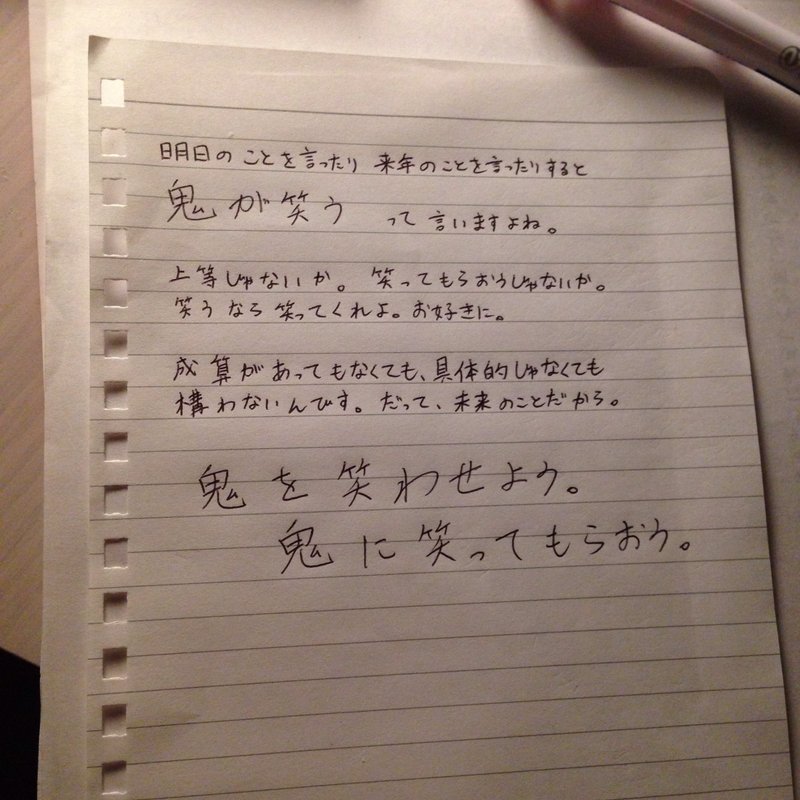 明日のことを言ったり 来年のことを言ったりすると
鬼が笑う って言いますよね。
上等じゃないか。笑ってもらおうじゃないか。
笑うなら笑ってくれよ。お好きに。
成算があってもなくても、具体的じゃなくても
構わないんです。だって、未来のことだから。
鬼を笑わせよう。
鬼に笑ってもらおう。